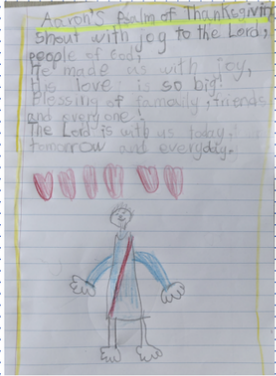 Aaron's Psalm of Thanksgiving
Shout with joy to the Lord,
people of God,
He made us with joy,
His love is so big!
Blessing of famouly, friends
and everyone!
The Lord is with us today,
tomorrow and everyday.